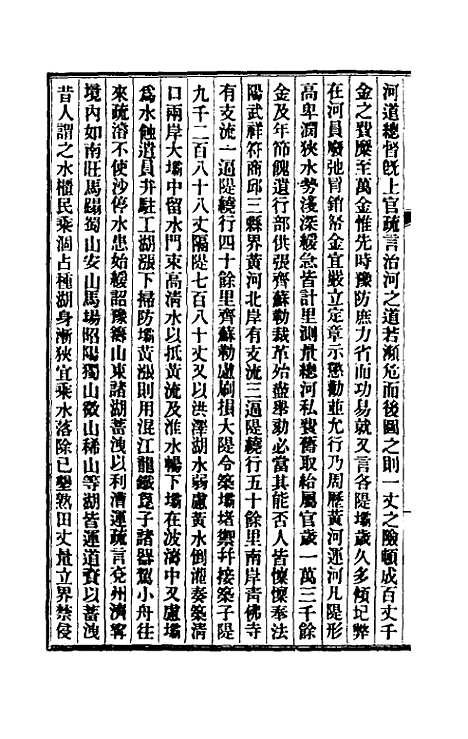 河道總督旣上官疏言治河之道若濒危而後圖之則一丈之險頓成百丈千
金之費糜至萬金惟先時豫防庶力省而功易就又言各隄壩歲久多傾圮弊
在河員廢弛冒銷帑金宜嚴立定章示懲勸並允行乃周歷黃河運河凡隄形
高卑濶狹水勢淺深緩急皆計里測量總河私費舊取給屬官歲一萬三千餘
金及年節餽遺行部供張齊蘇勒裁革始盡舉動必當其能否人皆懍懍奉法
陽武祥符商邱三縣界黃河北岸有支流三逼隄繞行五十餘里南岸靑佛寺
有支流一逼隄繞行四十餘里齊蘇勒慮刷損大隄令築壩堵禦幷接築子隄
九千二百八十八丈隔隄七百八十丈又以洪澤湖水弱慮黃水倒灌奏築清
口兩岸大壩中留水門束高清水以抵黃流及淮水暢下壩在波濤中又慮壩
爲水蝕遣員弁駐工湖漲下掃防壩黃漲則用混江龍鐵篦子諸器駕小舟往
來疏濬不使沙停水患始緩詔豫籌山東諸湖蓄洩以利漕運疏言兗州濟寧
境内如南旺馬蹋蜀山安山馬場昭陽獨山微山稀山等湖皆運道資以蓄洩
昔人謂之水櫃民乘涸占種湖身漸狹宜乘水落除已墾熟田丈量立界禁侵